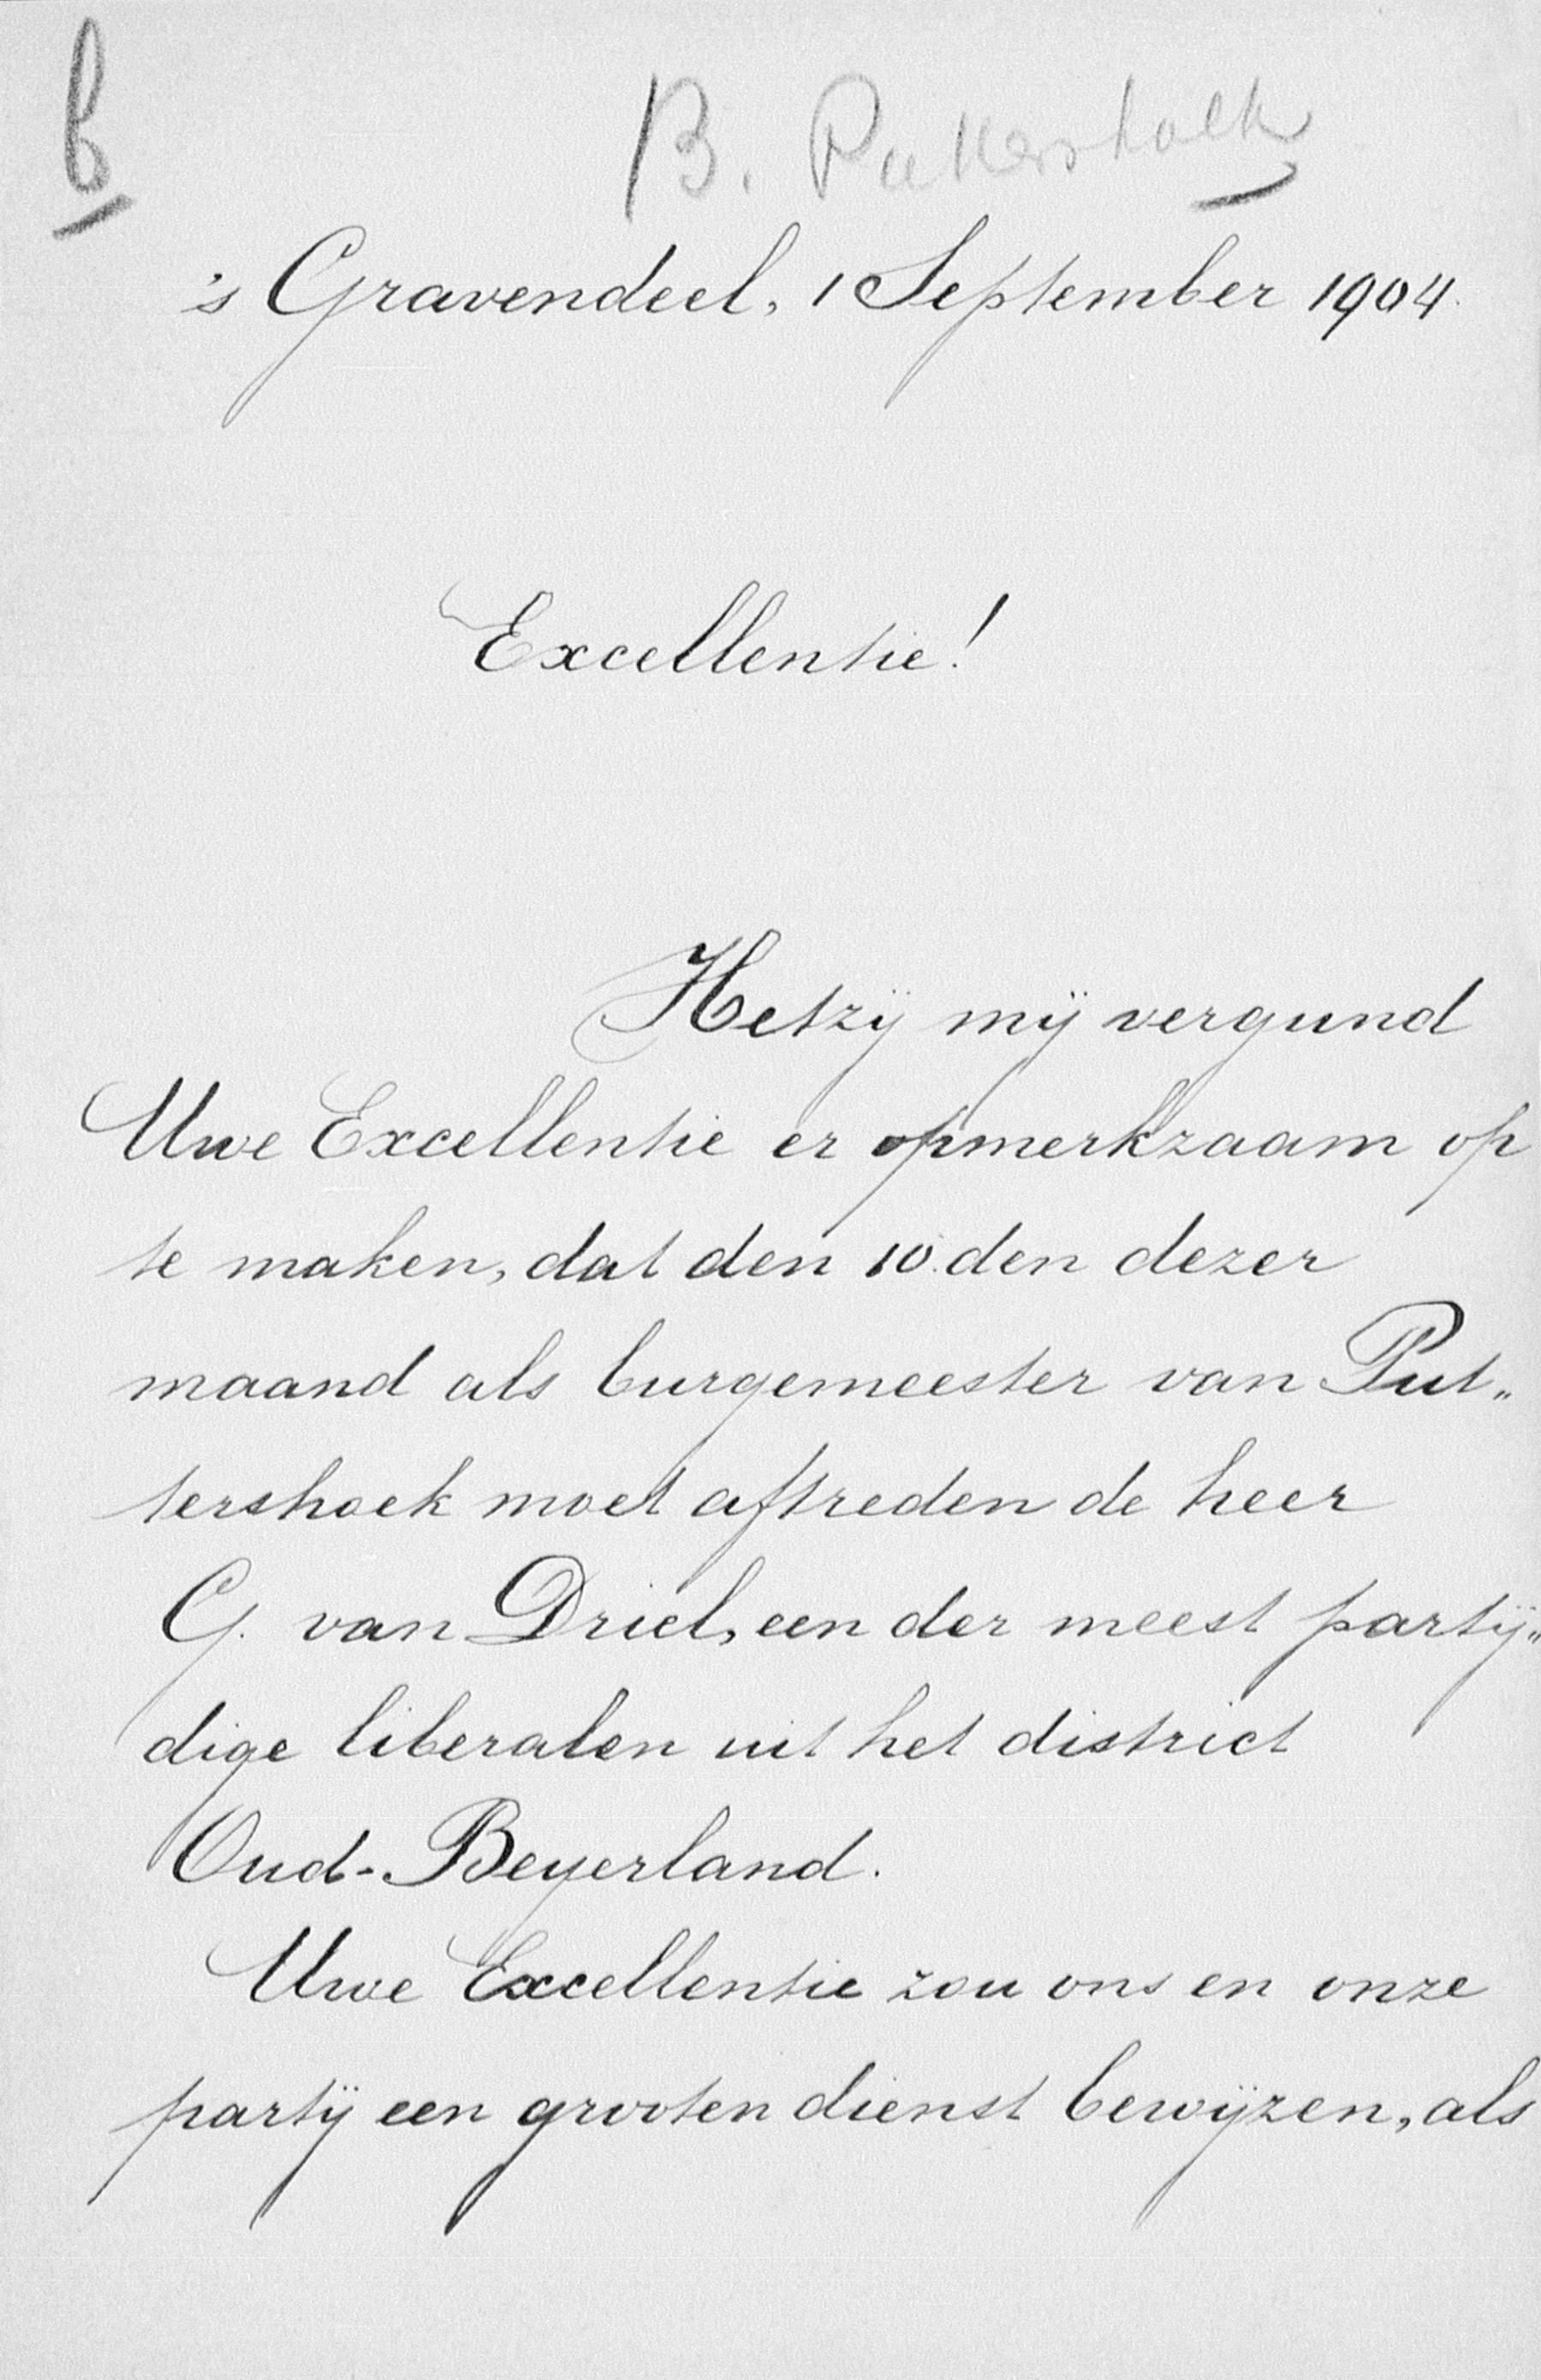 b
B. Puttershoek
's Gravendeel, 1 September 1904.
Excellentie!
Hetzij mij vergund
Uwe Excellentie er opmerkzaam op
te maken, dat den 10.den dezer
maand als burgemeester van Put„
tershoek moet aftreden de heer
G. van Driel, een der meest partij„
dige liberalen uit het district
Oud-Beyerland.
Uwe Excellentie zou ons en onze
partij een grooten dienst bewijzen, als